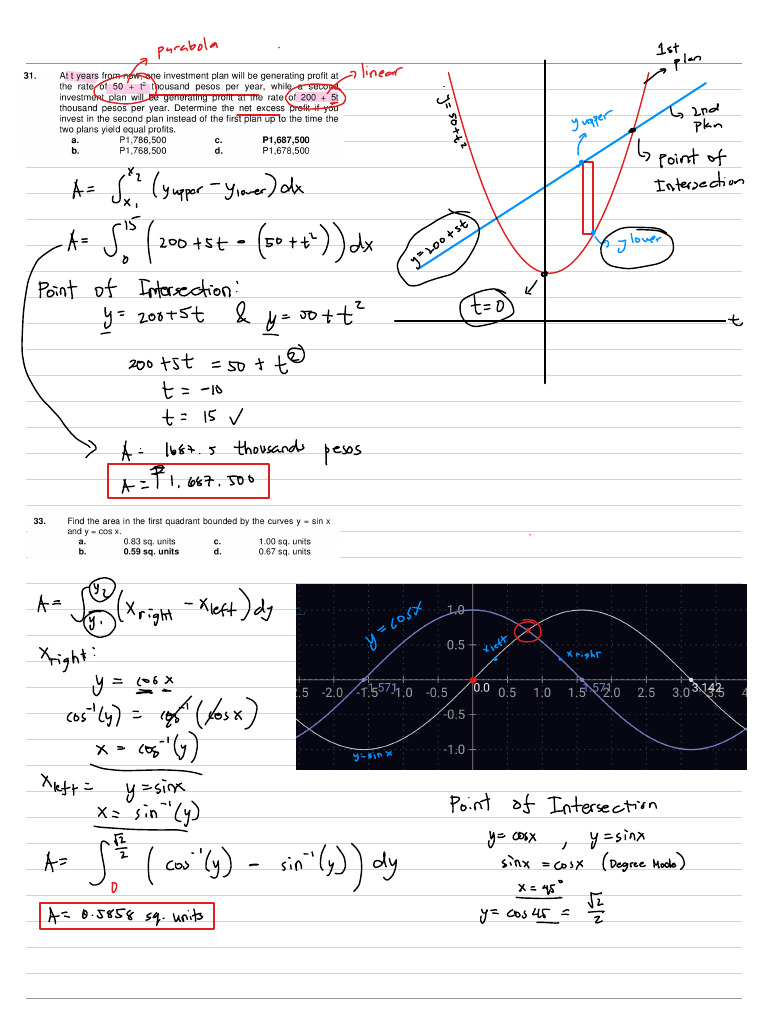 parabola
31. At t years from now, one investment plan will be generating profit at
the rate of 50 + t² thousand pesos per year, while a second
investment plan will be generating profit at the rate of 200 + 5t
thousand pesos per year. Determine the net excess profit if you
invest in the second plan instead of the first plan up to the time the
two plans yield equal profits.
a. P1,786,500 c. P1,687,500
b. P1,768,500 d. P1,678,500
linear
A = ∫x₁^x₂ (yupper - ylower) dx
A = ∫0^15 (200+5t - (50+t²)) dx
Point of Intersection:
y = 200+5t & y = 50+t²
200+5t = 50 + t²
t = -10
t = 15 ✓
A = 1687.5 thousands pesos
A = ₱1,687,500
1st plan
y=50+t²
y upper
2nd plan
Point of
Intersection
y=200+5t
y lower
t=0
t
33. Find the area in the first quadrant bounded by the curves y = sin x
and y = cos x.
a. 0.83 sq. units c. 1.00 sq. units
b. 0.59 sq. units d. 0.67 sq. units
A = ∫y₁^y₂ (xright - xleft) dy
xright:
y = cos x
cos⁻¹(y) = cos⁻¹(cos x)
x = cos⁻¹(y)
xleft = y=sinx
x = sin⁻¹(y)
A = ∫0^√2/2 (cos⁻¹(y) - sin⁻¹(y)) dy
A = 0.5858 sq. units
y = cosx
1.0
0.5
xleft
xright
2.5 -2.0 -1.571 -1.0 -0.5 0.0 0.5 1.0 1.571 2.0 2.5 3.0 3.142 3.5 4
-0.5
-1.0
y=sinx
Point of Intersection
y = cosx , y = sinx
sinx = cosx (Degree Mode)
x = 45°
y = cos 45 = √2/2